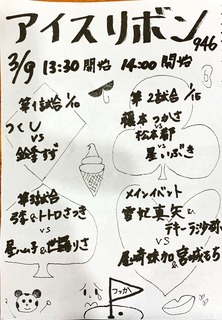 アイスリボン
946
3/9 13:30開始 14:00開始
第1試合 1/10
つくし
vs
鈴季すず
第2試合 1/15
藤本つかさ
vs
松本都
vs
星いぶき
第3試合
弓李&トトロさつき
vs
星ハム子&世羅りさ
メインイベント
雪妃真矢&
テキーラ沙弥
vs
尾崎妹加&宮城もち
つっか